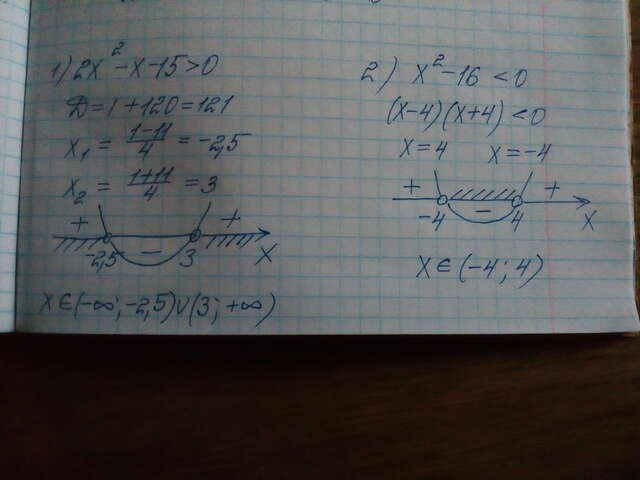 1) 2x² - x - 15 > 0
D = 1 + 120 = 121
x₁ = (1-11)/4 = -2,5
x₂ = (1+11)/4 = 3
+ - +
-2,5 3 x
x ∈ (-∞; -2,5) ∪ (3; +∞)
2) x² - 16 < 0
(x-4)(x+4) < 0
x = 4 x = -4
+ - +
-4 4 x
x ∈ (-4; 4)